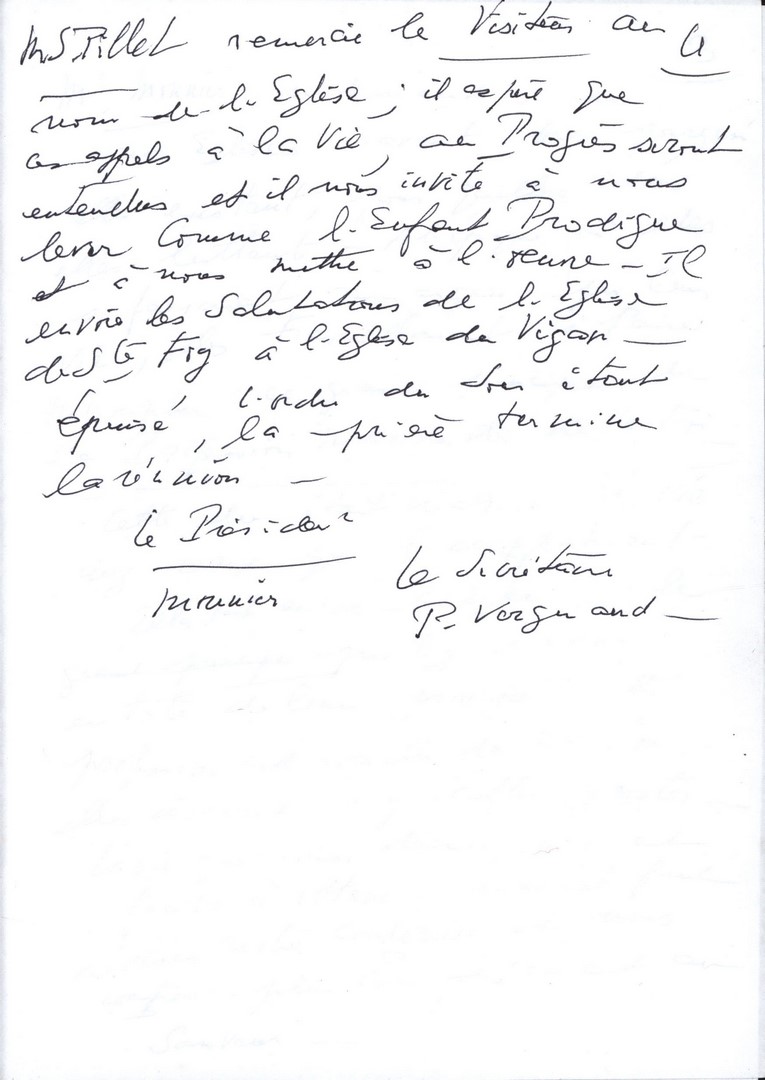 Mr S Pillet remercie le Visiteur au
nom de l. Eglise ; il espère que
ces appels à la Vie, au Progrès seront
entendus et il nous invite à nous
lever Comme l. Enfant Prodigue
et à nous mettre à l. oeuvre - Il
envoie les Salutations de l. Eglise
de Ste Foy à l. Eglise du Vigan —
l. ordre du jour étant
épuisé, la prière termine
la réunion —
le Président
Mounier
le Secrétaire
P. Vergnaud —